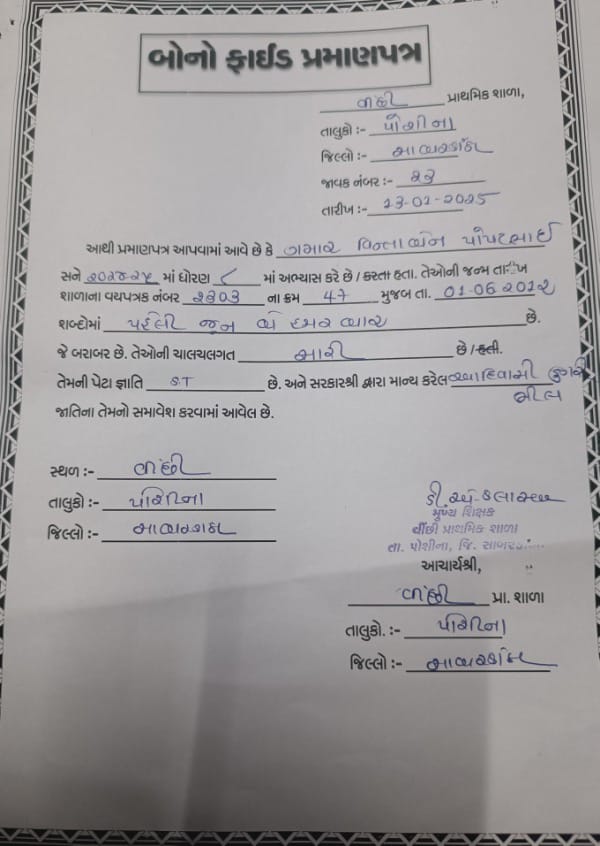 બોનો ફાઈડ પ્રમાણપત્ર
વાંછી પ્રાથમિક શાળા,
તાલુકો :- પોશીના
જિલ્લો :- સાબરકાંઠા
જાવક નંબર :- ૨૩
તારીખ :- 23-01-2025
આથી પ્રમાણપત્ર આપવામાં આવે છે કે ગમાર પોપટભાઈ
સને ૨૦૨૪-૨૫ માં ધોરણ ૮ માં અભ્યાસ કરે છે / કરતા હતા. તેઓની જન્મ તારીખ
શાળાના વયપત્રક નંબર ના ક્રમ 47 મુજબ તા. 01-06-2012
શબ્દોમાં પહેલી જૂન બે હજાર બાર છે.
જે બરાબર છે. તેઓની ચાલચલગત સારી છે / હતી.
તેમની પેટા જ્ઞાતિ S.T છે. અને સરકારશ્રી દ્વારા માન્ય કરેલ આદિવાસી ડુંગરી
ભીલ
જાતિના તેમનો સમાવેશ કરવામાં આવેલ છે.
સ્થળ :- વાંછી
તાલુકો :- પોશીના
જિલ્લો :- સાબરકાંઠા
મુખ્ય શિક્ષક
વાંછી પ્રાથમિક શાળા
તા. પોશીના, જિ. સાબરકાંઠા
આચાર્યશ્રી,
વાંછી પ્રા. શાળા
તાલુકો. :- પોશીના
જિલ્લો :- સાબરકાંઠા